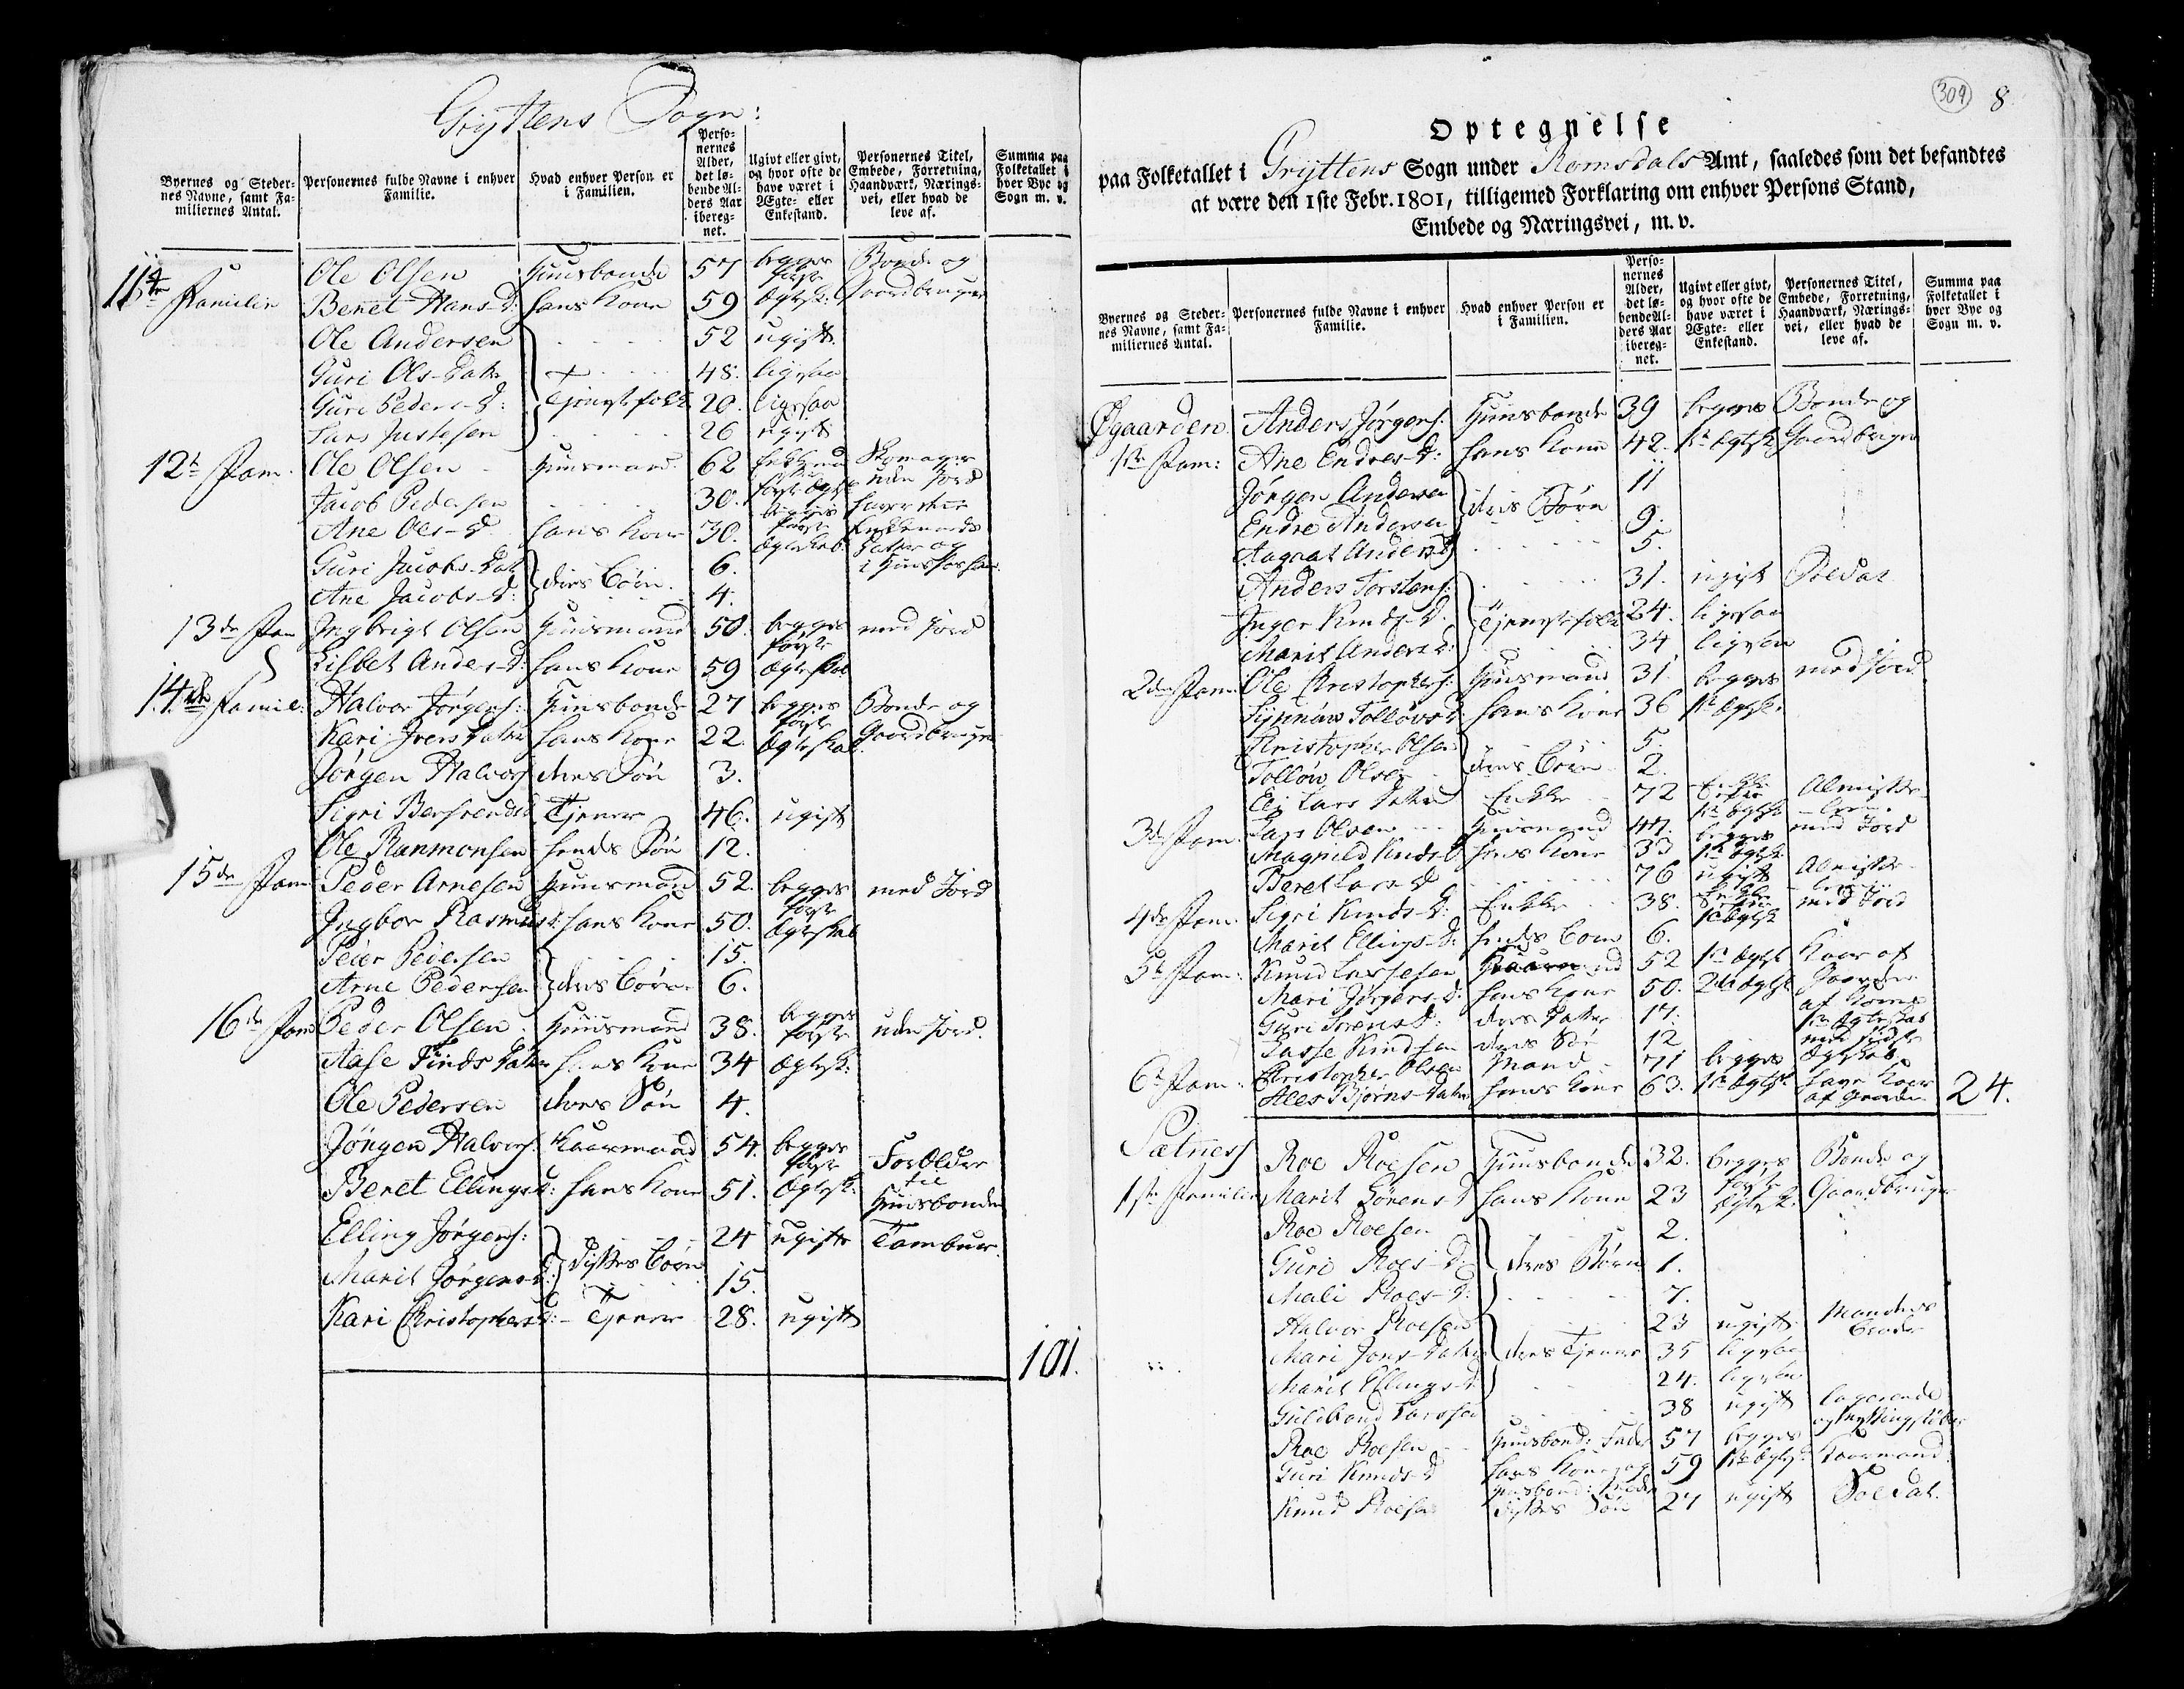 Gryttens Sogn:
Byernes og Steder-
nes Navne, samt Fa-
miliernes Antal.
Personernes fulde Navne i enhver
Familie.
Hvad enhver Person er
i Familien.
Perso-
nernes
Alder,
det lø-
bende Al-
ders Aar
ibereg-
net.
Ugivt eller givt,
og hvor ofte de
have været i
Ægte- eller
Enkestand.
Personernes Titel,
Embede, Forretning,
Haandværk, Nærings-
vei, eller hvad de
leve af.
Summa paa
Folketallet i
hver Bye og
Sogn m. v.
11te Familie Ole Olsen Huusbonde 57 begges første Bonde og
Beret Hans-D: hans Kone 59 Ægtesk: Gaardbruger
Ole Andersen 52 ugift
Guri Ols-Dater + 48. ligesaa
Guri Peders-D: Tjenestefolk 20. ligesaa
Lars Justesen 26 ugift
12te Fam. Ole Olsen Huusmand 62 uden Jord
Jacob Pedersen 30.
Ane Ols-D hans Kone 30.
Guri Jacobs-Dat 6.
Ane Jacobs-D: deres Børn 4.
13de Fam Ingbrigt Olsen Huusmand 50. begges første med Jord
Lisbet Anders-D: hans Kone 59 Ægteskab
14de Famil: Halvor Jørgens: Huusbonde 27 begges første Bonde og
Kari Ivers Dater hans Kone 22. Ægteskab. Gaardbruger
Jørgen Halvors deres Søn 3.
Sigri Tjener 46. ugift
Ole hendes Søn 12.
15de Fam Peder Arnesen Huusmand 52. begges første med Jord
Ingbor Rasmusd: hans Kone 50. Ægteskab
Peder Pedersen 15.
Arne Pedersen deres Børn 6.
16de Fam Peder Olsen Huusmand 38. begges første uden Jord.
Aase Finds Dater hans Kone 34 Ægtesk:
Ole Pedersen deres Søn 4.
Jørgen Halvors: Kaarmand 54. begges første Forældre
Beret Ellingsd: hans Kone 51. Ægtesk: til Huusbonden
Elling Jørgens: 24 ugift Tambur.
Marit Jørgens-d: disses Børn 15.
Kari Christophersd: - Tjener 28. ugift
101.
309 8
Optegnelse
paa Folketallet i Gryttens Sogn under Romsdals Amt, saaledes som det befandtes
at være den 1ste Febr. 1801, tilligemed Forklaring om enhver Persons Stand,
Embede og Næringsvei, m. v.
Byernes og Steder-
nes Navne, samt Fa-
miliernes Antal.
Personernes fulde Navne i enhver
Familie.
Hvad enhver Person er
i Familien.
Perso-
nernes
Alder,
det lø-
bende Al-
ders Aar
ibereg-
net.
Ugivt eller givt,
og hvor ofte de
have været i
Ægte- eller
Enkestand.
Personernes Titel,
Embede, Forretning,
Haandværk, Nærings-
vei, eller hvad de
leve af.
Summa paa
Folketallet i
hver Bye og
Sogn m. v.
Øgaarden. Anders Jørgens: Huusbonde 39 begges Bonde og
1ste Fam: Ane Endres-D: hans Kone 42. 1te Ægtsk Gaardbruger
Jørgen Andersen 11
Endre Andersen deres Børn 9.
Aagaat Andersd 5.
Anders Torstens: 31. ugift Soldat
Inger Knuds-D. Tjenestefolk 24. ligesaa
Marit Andersd: 34 ligesaa
2den Fam. Ole Christophers: Huusmand 31. begges med Jord
hans Kone 36 1te Ægtsk.
Christopher Olsen 5.
Olsen deres Børn 2.
Lars Dater Enke 72 1te Ægtsk
3de Fam. Lars Olsen Huusmand 47. begges med Jord
Magnild Knuds-D hans Kone 33 1te Ægtsk
Beret Lars-D 76 ugift
4de Fam. Sigri Knuds-D: Enke 38. 1te Ægtsk med Jord
Marit Ellings-D: hendes Barn 6.
5te Fam: Knud Lassesen 52 1te Ægtsk Kaar af
Mari Jørgens-d: hans Kone 50. 2det Ægtsk Gaarden
Guri Sørensd: deres Dater 17.
Lasse Knudsen deres Søn 12
6te Fam: Christopher Olsen Mand 71 begges
Bjørns-Dater hans Kone 63. 1te Ægtsk have Kaar af Gaarden 24.
Sætness Roe Roesen Huusbonde 32. begges første Bonde og
1ste Familie Marit Sørens-d hans Kone 23 Ægtesk. Gaardbruger
Roe Roesen 2.
Guri Roes-D: deres Børn 1.
Mali Roes-D: 7.
Halvor Roesen 23 ugift Mandens Broder
Mari Jons-Dater deres Tjener 35 ligesaa
Marit Ellings-d 24. ligesaa
Guldbrand Larssen 38 ugift
Roe Roesen Huusbond: Fader 57 begges
Guri Knuds-d hans Kone og 59 1te Ægtsk: Kaarmand.
Knud Roesen disses Søn 27 ugift Soldat.